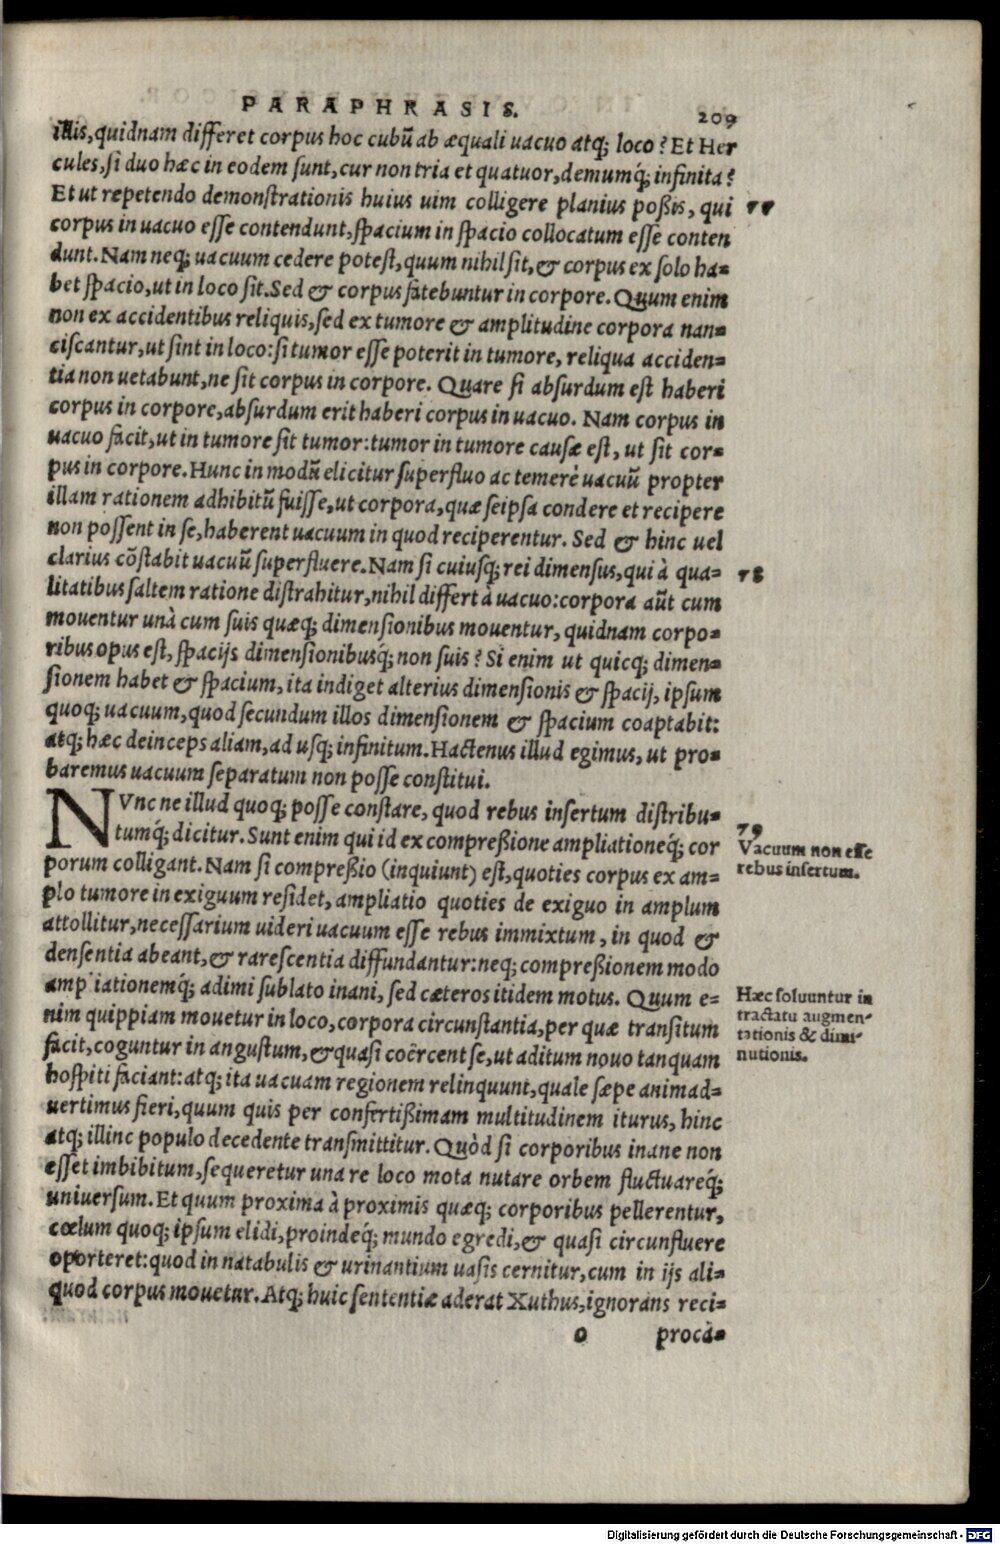 PARAPHRASIS. 209
illis, quidnam differet corpus hoc cubũ ab æquali uacuo atq; loco? Et Her
cules, si duo hæc in eodem sunt, cur non tria et quatuor, demumq́; infinita?
Et ut repetendo demonstrationis huius uim colligere planius poßis, qui
77
corpus in uacuo esse contendunt, spacium in spacio collocatum esse conten
dunt. Nam neq; uacuum cedere potest, quum nihil sit, & corpus ex solo ha=
bet spacio, ut in loco sit. Sed & corpus fatebuntur in corpore. Quum enim
non ex accidentibus reliquis, sed ex tumore & amplitudine corpora nan=
ciscantur, ut sint in loco: si tumor esse poterit in tumore, reliqua acciden=
tia non uetabunt, ne sit corpus in corpore. Quare si absurdum est haberi
corpus in corpore, absurdum erit haberi corpus in uacuo. Nam corpus in
uacuo facit, ut in tumore sit tumor: tumor in tumore causæ est, ut sit cor=
pus in corpore. Hunc in modũ elicitur superfluo ac temerè uacuũ propter
illam rationem adhibitũ fuisse, ut corpora, quæ seipsa condere et recipere
non possent in se, haberent uacuum in quod reciperentur. Sed & hinc uel
clarius cõstabit uacuũ superfluere. Nam si cuiusq; rei dimensus, qui à qua=
78
litatibus saltem ratione distrahitur, nihil differt à uacuo: corpora aũt cum
mouentur unà cum suis quæq; dimensionibus mouentur, quidnam corpo=
ribus opus est, spacijs dimensionibusq́; non suis? Si enim ut quicq; dimen=
sionem habet & spacium, ita indiget alterius dimensionis & spacij, ipsum
quoq; uacuum, quod secundum illos dimensionem & spacium coaptabit:
atq; hæc deinceps aliam, ad usq; infinitum. Hactenus illud egimus, ut pro=
baremus uacuum separatum non posse constitui.
NVnc ne illud quoq; posse constare, quod rebus insertum distribu=
tumq́; dicitur. Sunt enim qui id ex compreßione ampliationeq́; cor
79
Vacuum non esse
rebus insertum.
porum colligant. Nam si compreßio (inquiunt) est, quoties corpus ex am=
plo tumore in exiguum residet, ampliatio quoties de exiguo in amplum
attollitur, necessarium uideri uacuum esse rebus immixtum, in quod &
densentia abeant, & rarescentia diffundantur: neq; compreßionem modo
amp iationemq́; adimi sublato inani, sed cæteros itidem motus. Quum e=
Hæc soluuntur in
tractatu augmen-
tationis & dimi-
nutionis.
nim quippiam mouetur in loco, corpora circunstantia, per quæ transitum
facit, coguntur in angustum, & quasi coërcent se, ut aditum nouo tanquam
hospiti faciant: atq; ita uacuam regionem relinquunt, quale sæpe animad=
uertimus fieri, quum quis per confertißimam multitudinem iturus, hinc
atq; illinc populo decedente transmittitur. Quòd si corporibus inane non
esset imbibitum, sequeretur una re loco mota nutare orbem fluctuareq́;
uniuersum. Et quum proxima à proximis quæq; corporibus pellerentur,
cœlum quoq; ipsum elidi, proindeq́; mundo egredi, & quasi circunfluere
oporteret: quod in natabulis & urinantium uasis cernitur, cum in ijs ali=
quod corpus mouetur. Atq; huic sententiæ aderat Xuthus, ignorans reci=
o procà=
Digitalisierung gefördert durch die Deutsche Forschungsgemeinschaft - DFG